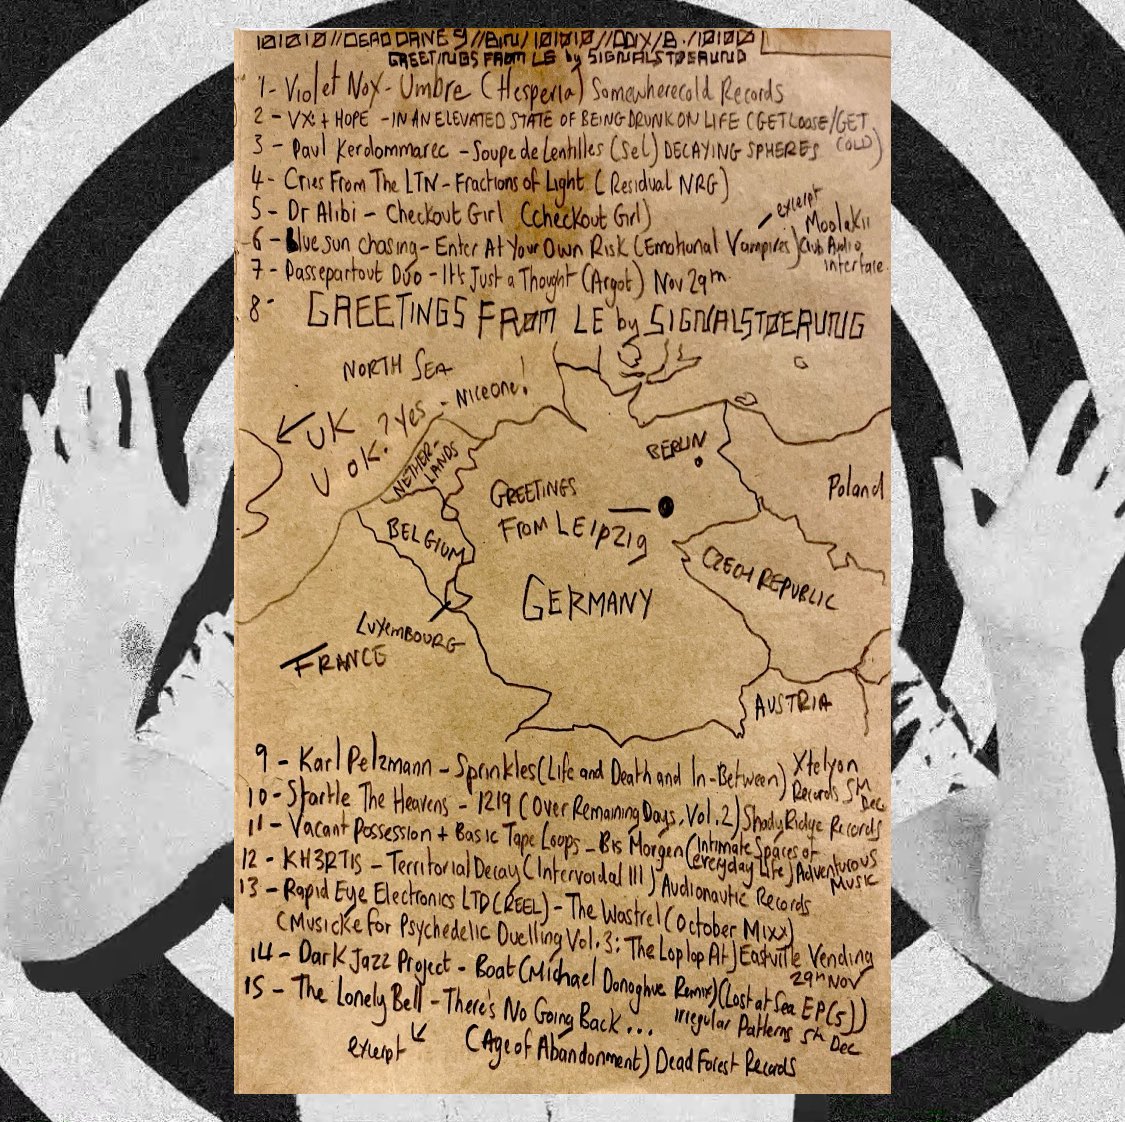 101010//DEAD DANE 9//BIN/101010//DDIX/B./10100
GREETINGS FROM LE by SIGNALSTØERUNG
1- Violet Nox - Umbre (Hesperia) Somewherecold Records
2 - VX + HOPE - IN AN ELEVATED STATE OF BEING DRUNK ON LIFE (GET LOOSE/GET COLD)
3 - Paul Kerdommarec - Soupe de Lentilles (Sel) DECAYING SPHERES
4 - Cries From The LTN - Fractions of Light (Residual NRG)
5 - Dr Alibi - Checkout Girl (Checkout Girl)
excerpt
6 - Blue sun chasing - Enter At Your Own Risk (Emotional Vampires) Moolakii Club Audio interface
7 - Passepartout Duo - It's Just a Thought (Argot) Nov 29th
8- GREETINGS FROM LE by SIGNALSTØERUNG
NORTH SEA
UK
U OK? Yes - Nice one!
NETHER-
LANDS
BERLIN
Poland
GREETINGS
FROM LEIpZig
BELGIUM
CZECH REPUBLIC
GERMANY
LUXEMBOURG
FRANCE
AUSTRIA
9 - Karl Pelzmann - Sprinkles (Life and Death and In-Between) Xtelyon Records 5th Dec
10 - Startle The Heavens - 1219 (Over Remaining Days, Vol. 2) Shady Ridge Records
11 - Vacant Possession + Basic Tape Loops - Bis Morgen (Intimate Spaces of everyday Life) Adventurous Music
12 - KH3RTIS - Territorial Decay (Intervoidal III) Audionautic Records
13 - Rapid Eye Electronics LTD (REEL) - The Wastrel (October Mixx)
(Musicke for Psychedelic Duelling Vol. 3: The Loplop At) Eastville Vending
29th NOV
14 - Dark Jazz Project - Boat (Michael Donoghue Remix) (Lost at Sea EP(5))
Irregular Patterns 5th Dec
15 - The Lonely Bell - There's No Going Back...
excerpt
(Age of Abandonment) Dead Forest Records